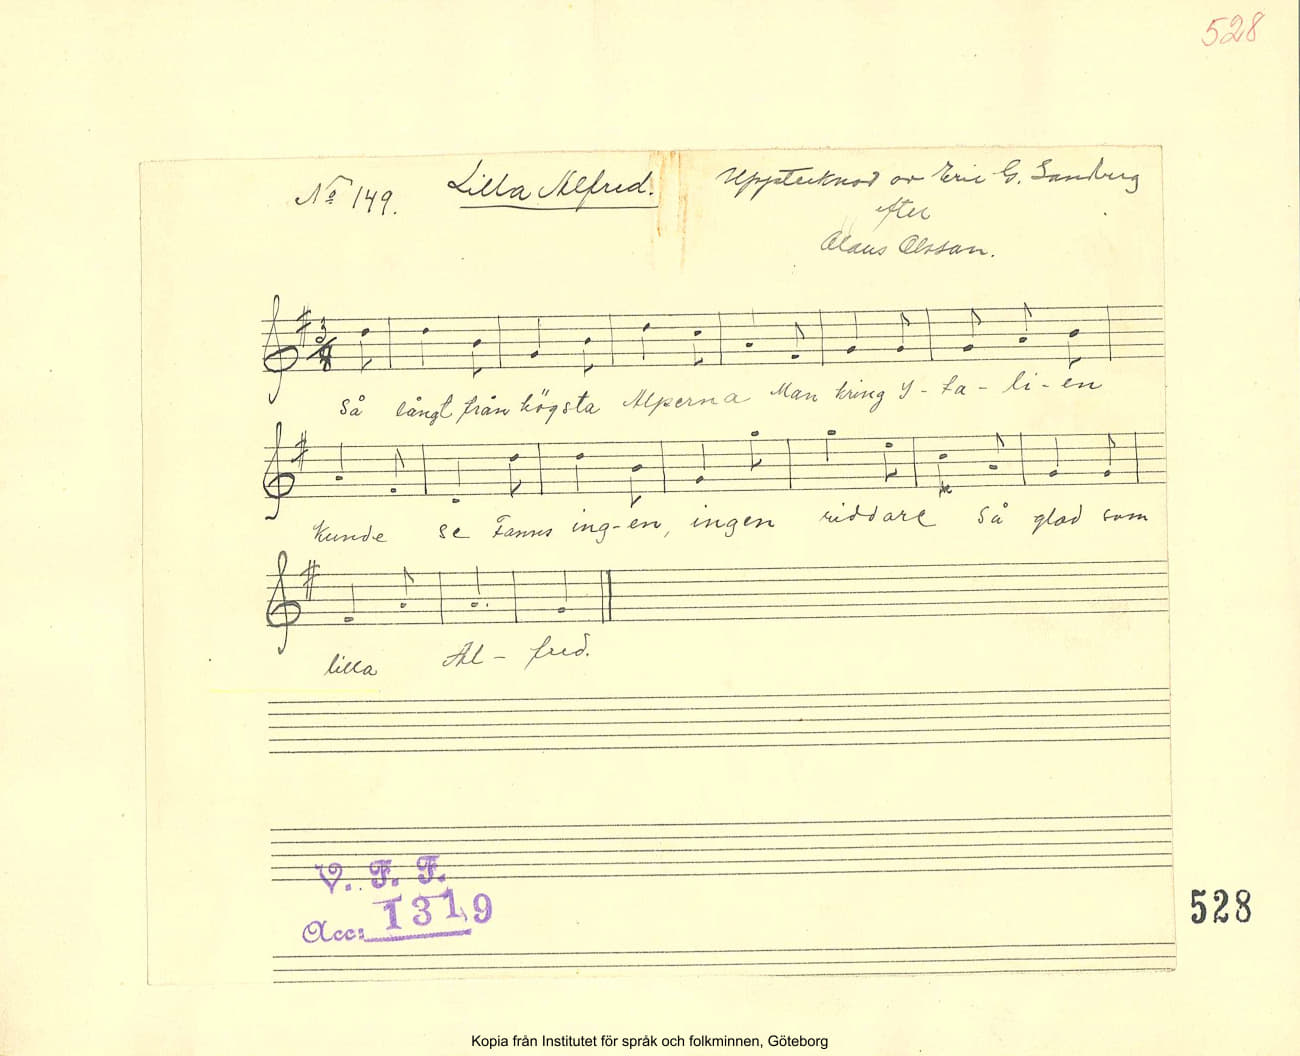 528
No 149. Lilla Alfred. Upptecknad av Eric G. Sandberg
efter
Olaus Olsson.
3/8
Så långt från högsta Alperna Man kring Y-ta-li-en
kunde se Fanns ing-en, ingen riddare så glad som
lilla Al-fred.
V. F. F.
Acc: 1319
528
Kopia från Institutet för språk och folkminnen, Göteborg